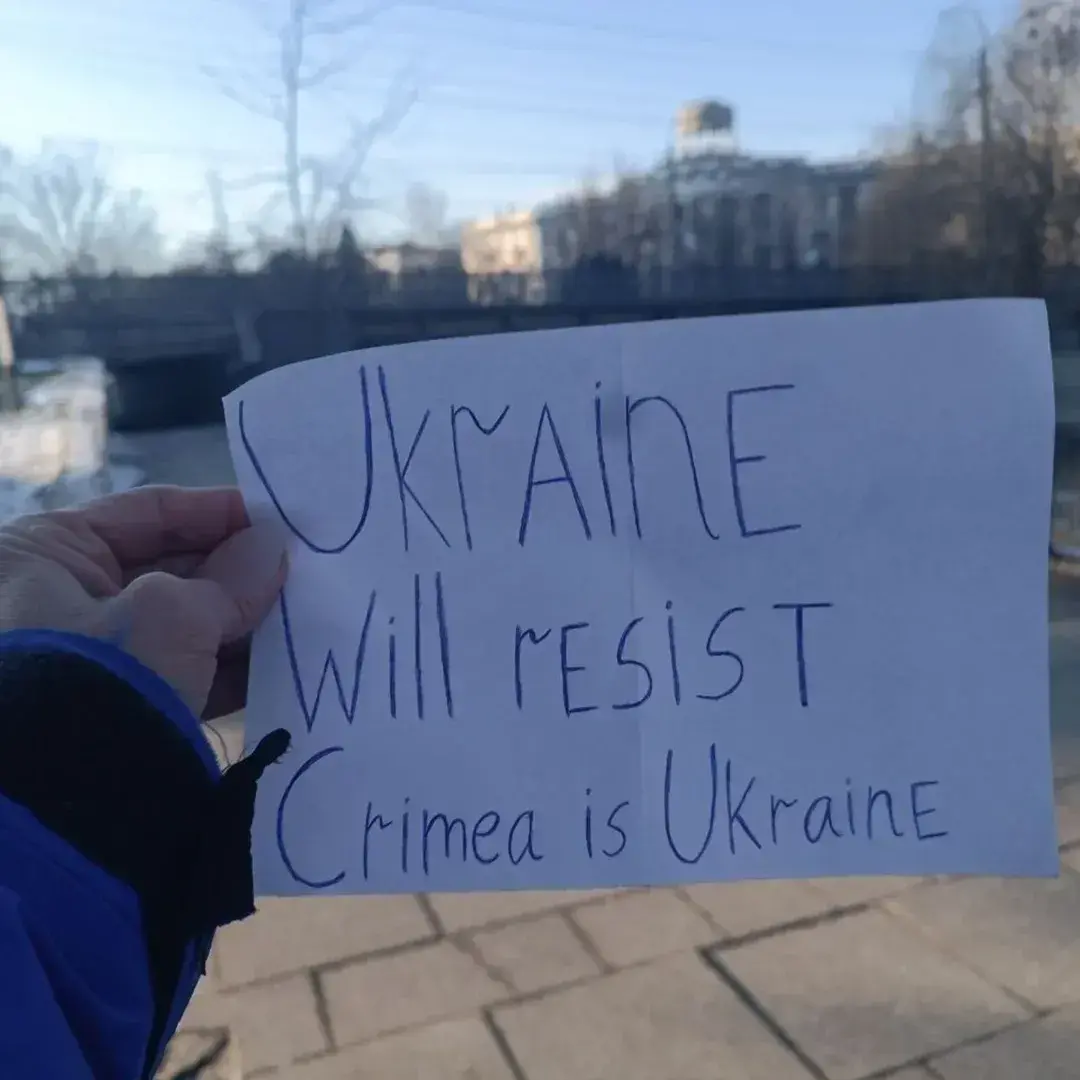 UkrAinE
Will rESIST
Crimea is UkrainE